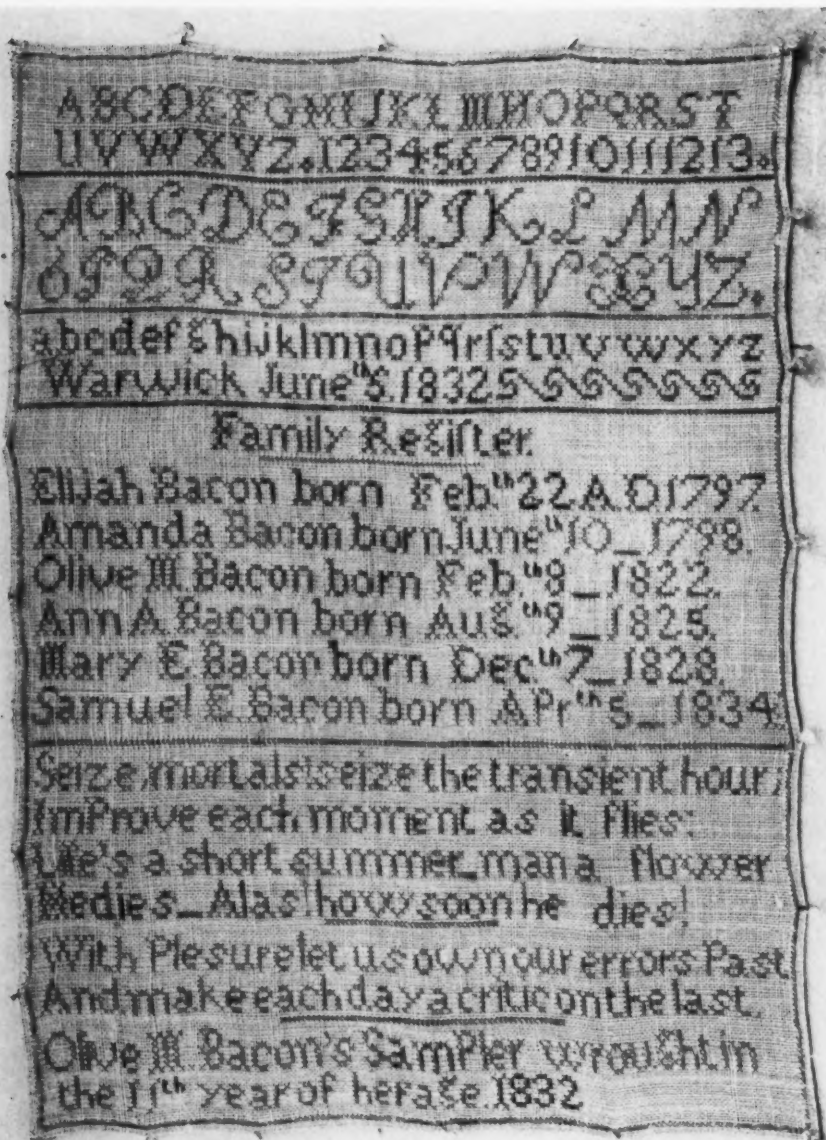 ABCDEFGHIJKLMNOPQRST
UVWXYZ.12345678910111213.
ABCDEFGHIJKLMN
OPQRSTUVWXYZ.
abcdefghijklmnopqrſstuvwxyz
Warwick June th5.1832
Family Regiſter.
Elijah Bacon born Feb. th22 A.D 1797.
Amanda Bacon born June th10_1798.
Olive M. Bacon born Feb. th8_1822.
Ann A. Bacon born Aug. th9_1825.
Mary E Bacon born Dec th7_1828.
Samuel E. Bacon born APr th5_1834
Seize, mortals! seize the transient hour;
ImProve each moment as it flies:
Life's a short summer_man a flower
He dies_Alas! how soon he dies!
With Plesure let us own our errors Past
And make each day a critic on the last.
Olive M. Bacon's SamPler wrought in
the 11th year of her age. 1832